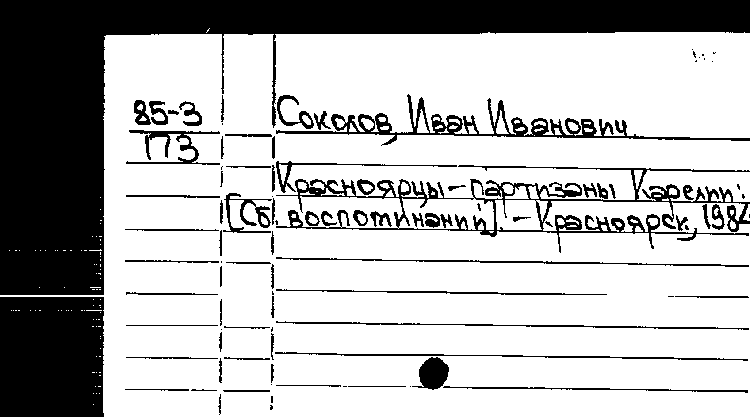 85-3
173
Соколов, Иван Иванович.
Красноярцы - партизаны Карелии:
[Сб. воспоминаний]. - Красноярск, 1984